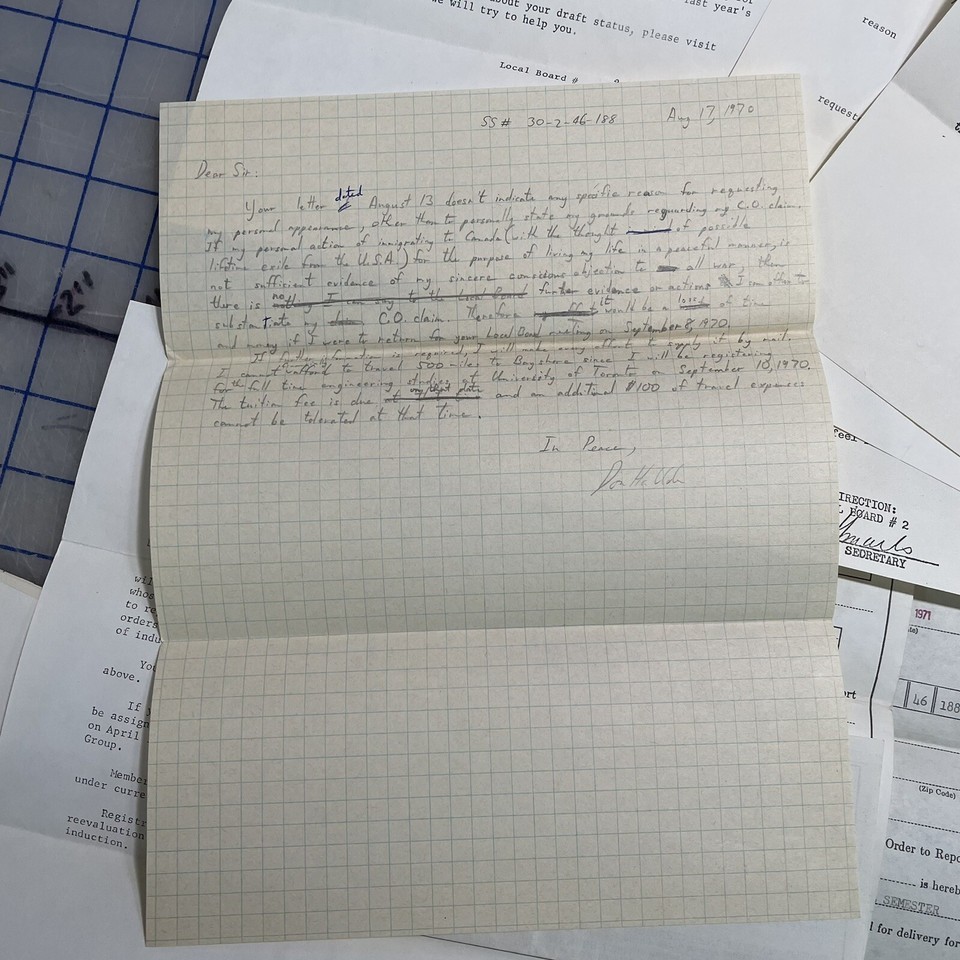 about your draft status, please visit
last year's
will try to help you.
Local Board #
reason
request
SS# 30-2-46-188 Aug 17, 1970
Dear Sir:
Your letter dated August 13 doesn't indicate any specific reason for requesting
my personal appearance, other than to personally state my grounds reguarding my C.O. claim.
If my personal action of immigrating to Canada (with the thought of possible
lifetime exile from the U.S.A.) for the purpose of living my life in a peaceful manner, is
not sufficient evidence of my sincere conscious objection to all war, then
there is no further evidence or actions I can offer to
substantiate my C.O. claim. Therefore it would be a loss of time
and money if I were to return for your Local Board meeting on September 8, 1970.
If further information is required, I will make every effort to supply it by mail.
I cannot afford to travel 500 miles to Bayshore since I will be registering
for full time engineering studies at University of Toronto on September 10, 1970.
The tuition fee is due and an additional $100 of travel expenses
cannot be tolerated at that time.
In Peace,
feel
DIRECTION:
BOARD # 2
SECRETARY
1971
46 188
(Zip Code)
Order to Repo
is hereb
SEMESTER
l for delivery for
wil
whos
to re
orders
of indu
Yo
above.
If y
be assign
on April
Group.
Member
under curre
Registr
reevaluation
induction.
2"